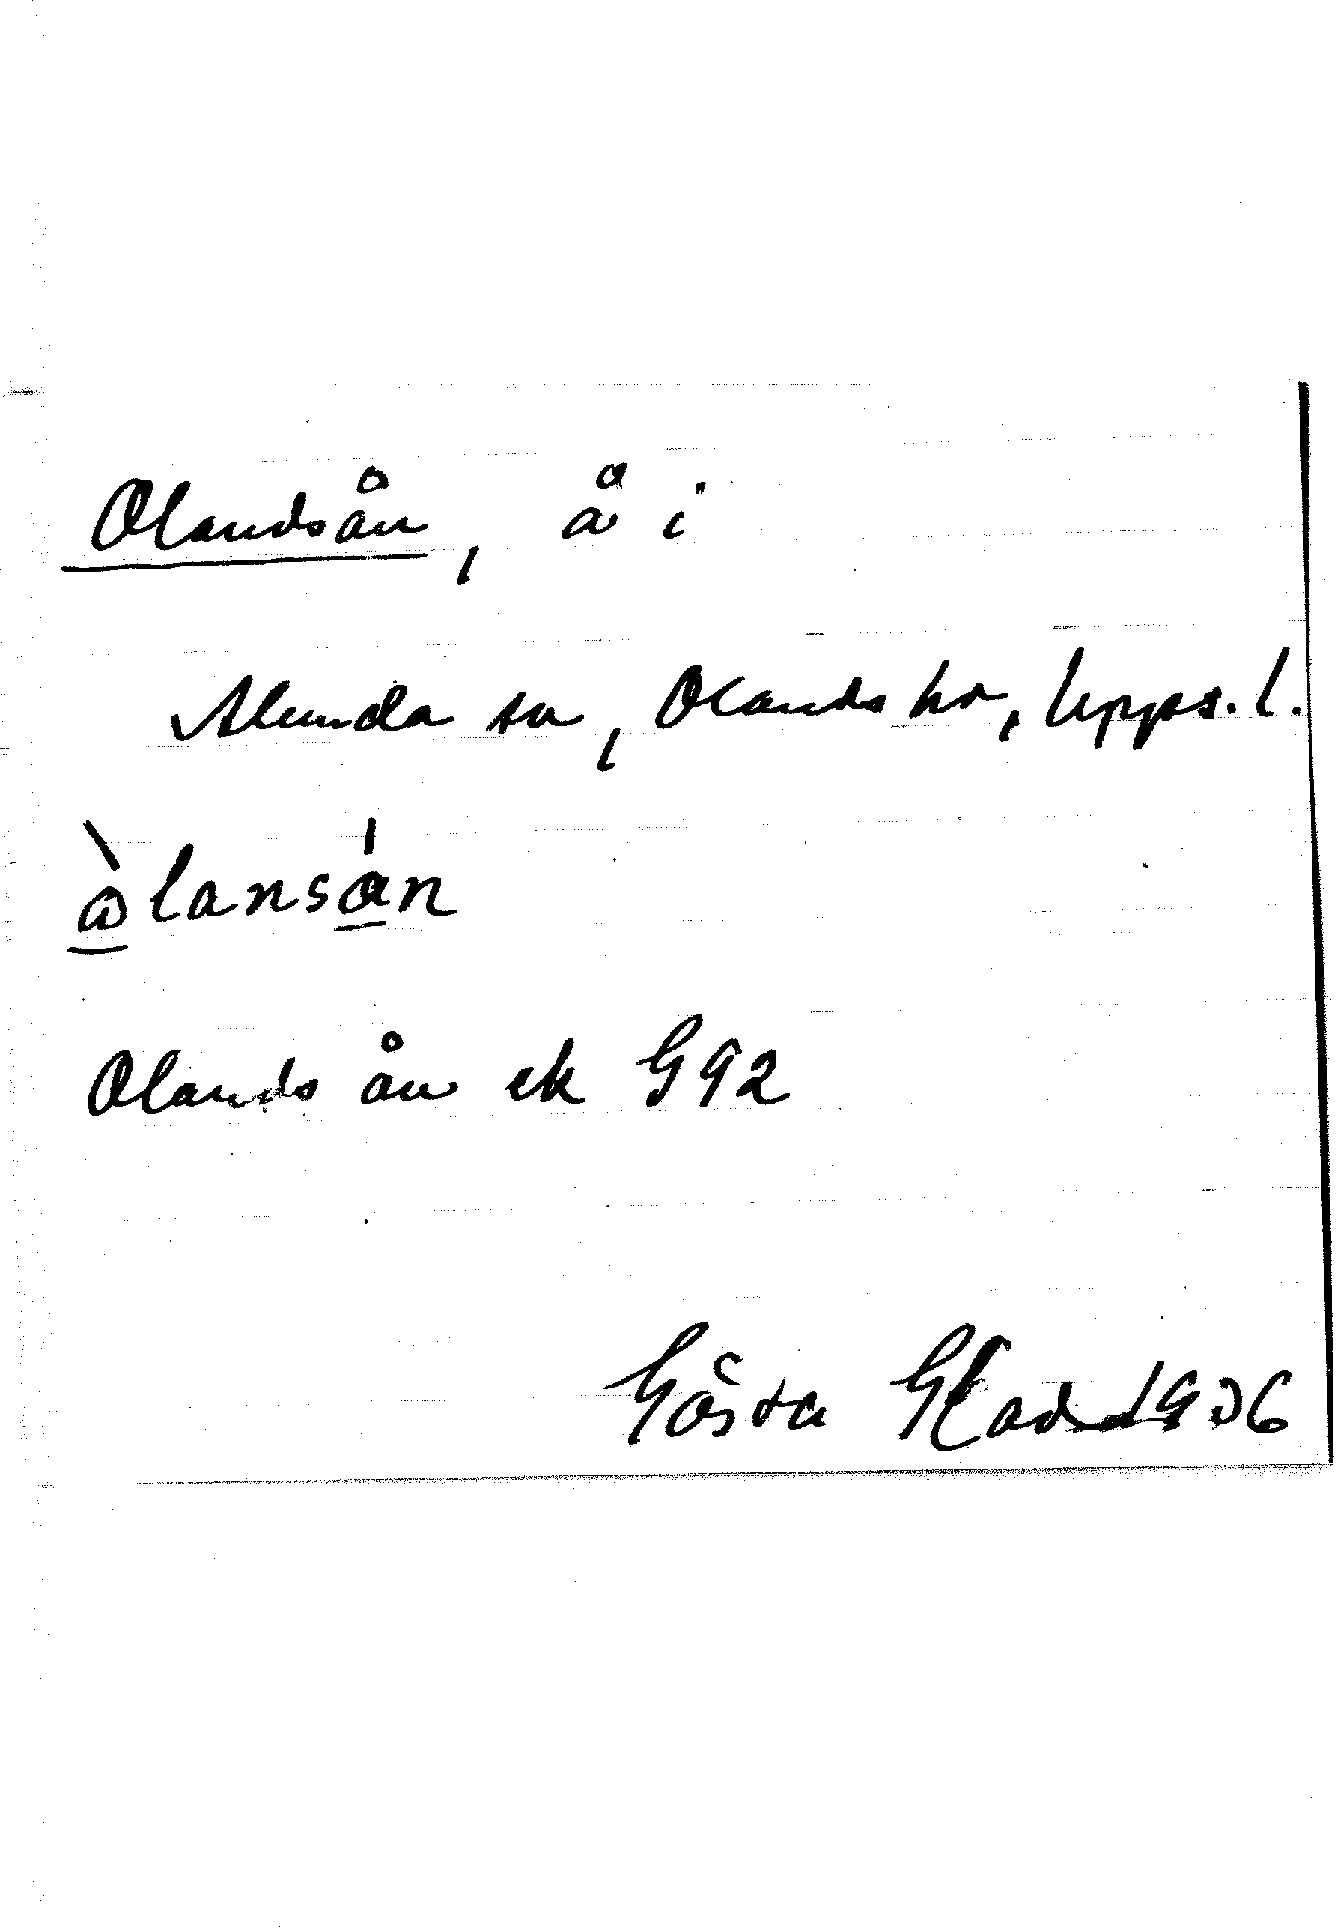 Olandsån, å i
Alunda sn, Olands hr, Upps. l.
ⱥ̀lansån
Olands ån ek G92
Gösta Glad 1936